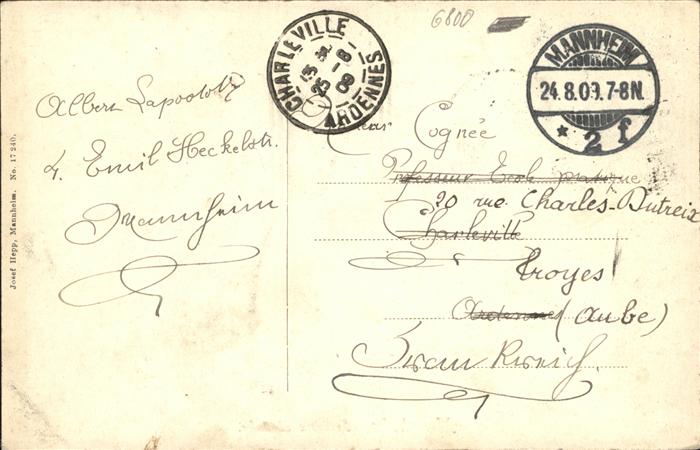 6800
CHARLEVILLE
25 - 8
09
ARDENNES
MANNHEIM
24.8.09.7-8N.
* 2 f
Albert
4. Emil Heckelstr.
Mannheim
Josef Hepp, Mannheim. No. 17240.
Cognée
Professeur Ecole pratique
20 rue Charles-Dutreix
Charleville
Troyes
Ardennes (Aube)
Frankreich.